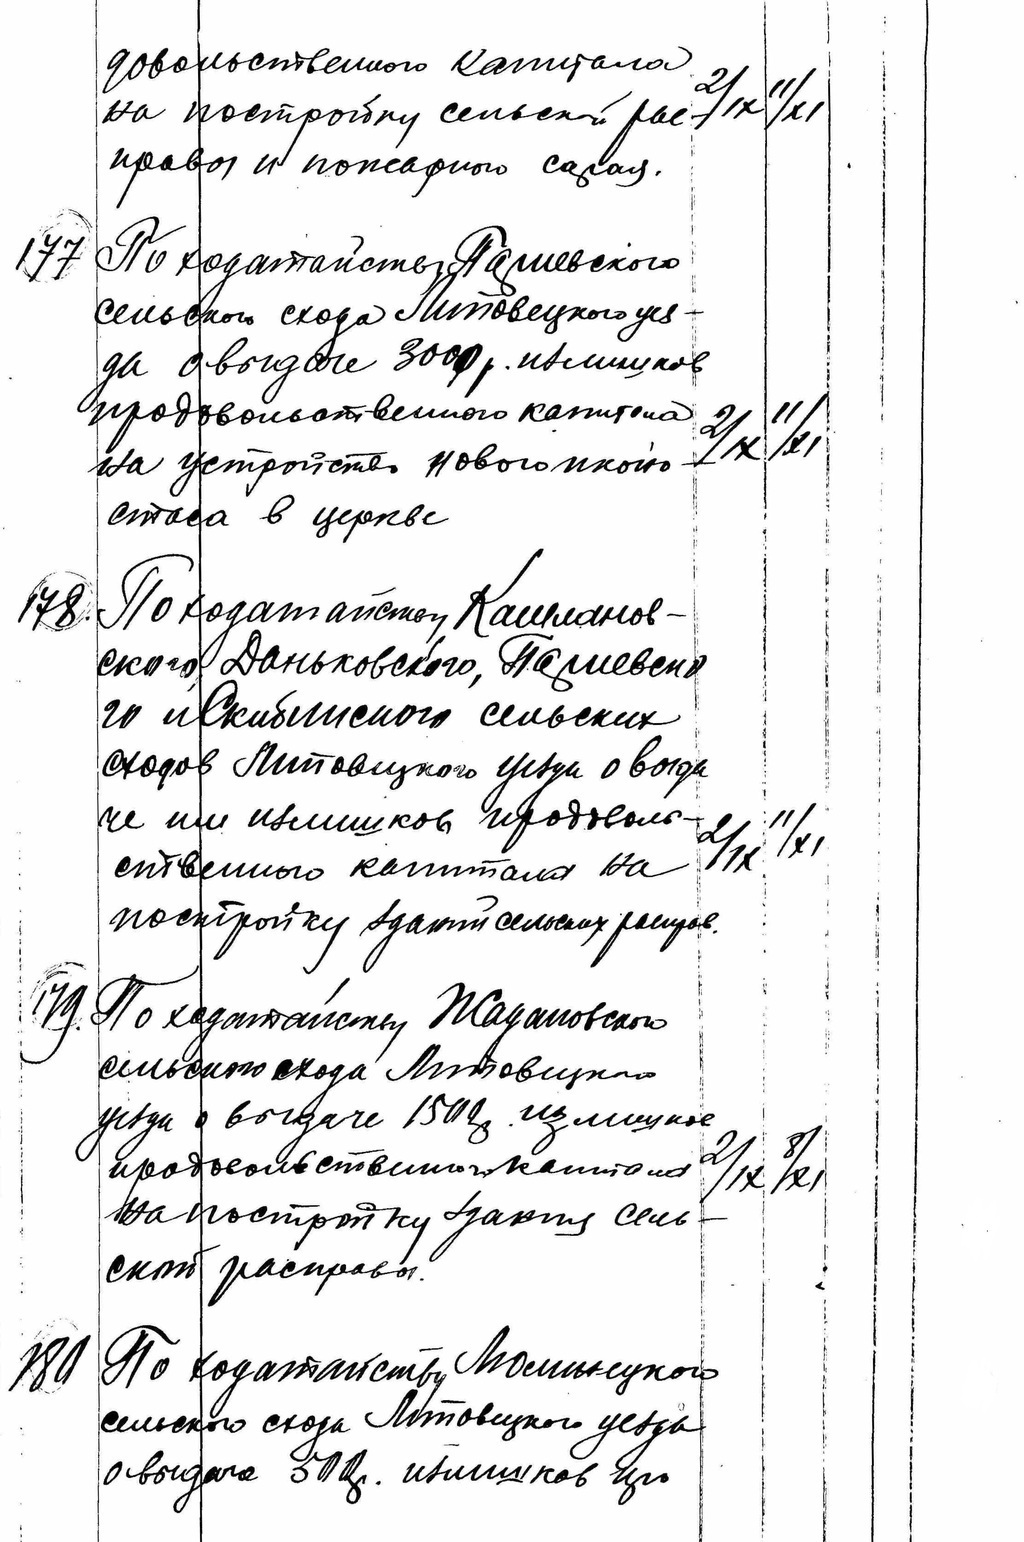 довольственного капитала
на постройку сельской рас- 2/IX 11/XI
правы и пожарного сарая.
177 По ходатайству Париевского
сельского схода Липовецкого уез-
да о выдаче 3000 р. излишков
продовольственного капитала
на устройство нового иконо- 2/IX 11/XI
стаса в церкве
178. По ходатайству Кашланов-
ского, Даньковского, Париевско
го и Скибинского сельских
сходов Липовецкого уезда о выда
че им излишков продоволь-
ственного капитала на 2/IX 11/XI
постройку зданий сельских расправ.
179. По ходатайству Жадановского
сельского схода Липовецкого
уезда о выдаче 1500 р. излишков
продовольственного капитала 2/IX 8/XI
на постройку здания сель-
ской расправы.
180 По ходатайству
сельского схода Липовецкого уезда
о выдаче 500 р. излишков про